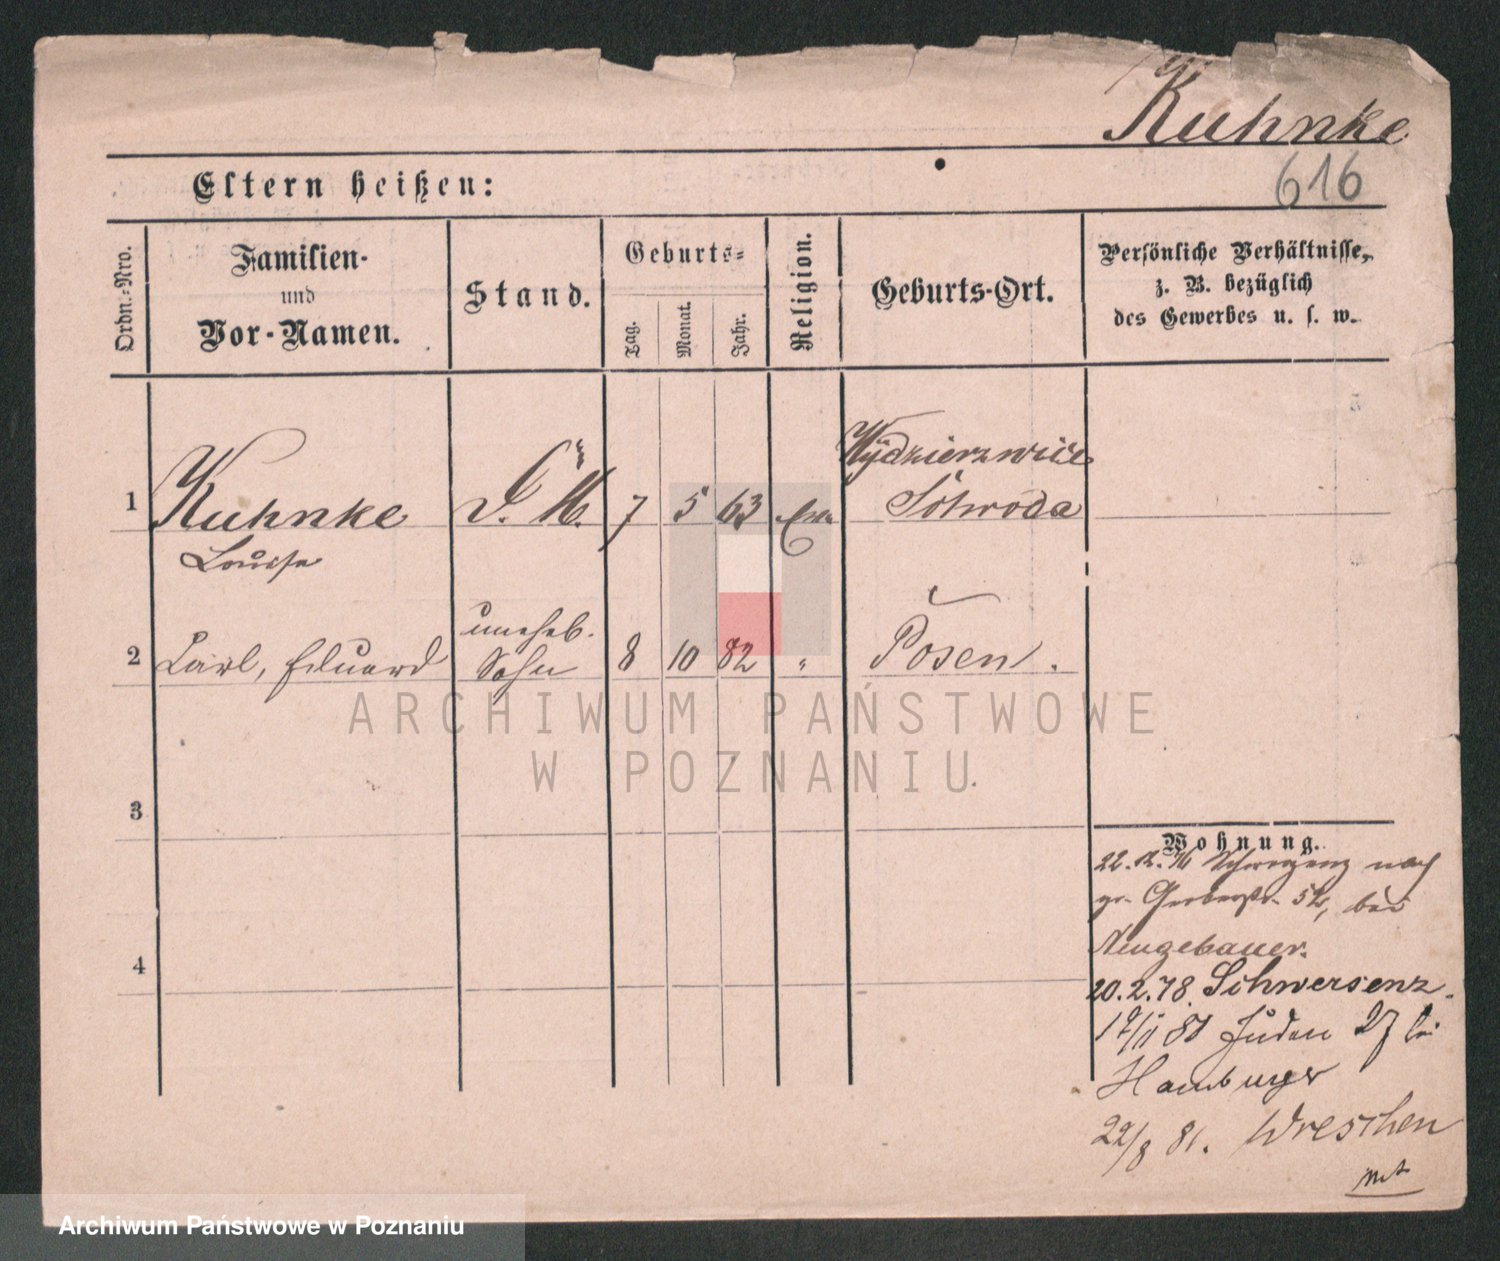 Kuhnke
616
Eltern heißen:
Ordn.-Nro.
Familien-
und
Vor-Namen.
Stand.
Geburts-
Tag.
Monat.
Jahr.
Religion.
Geburts-Ort.
Persönliche Verhältnisse,
z. B. bezüglich
des Gewerbes u. s. w.
1 Kuhnke 7 5 63 Schroda
Louise
2 Carl, Eduard
uneheb.
Sohn 8 10 82 " Posen.
3
4
ARCHIWUM PAŃSTWOWE
W POZNANIU
Wohnung.
22. 12. 76 nach
gr. Gerberstr. 52, bei
Neugebauer.
20.2.78. Schwersenz.
Juden 27 bei
Hamburger
22/8 81. Wreschen
Archiwum Państwowe w Poznaniu